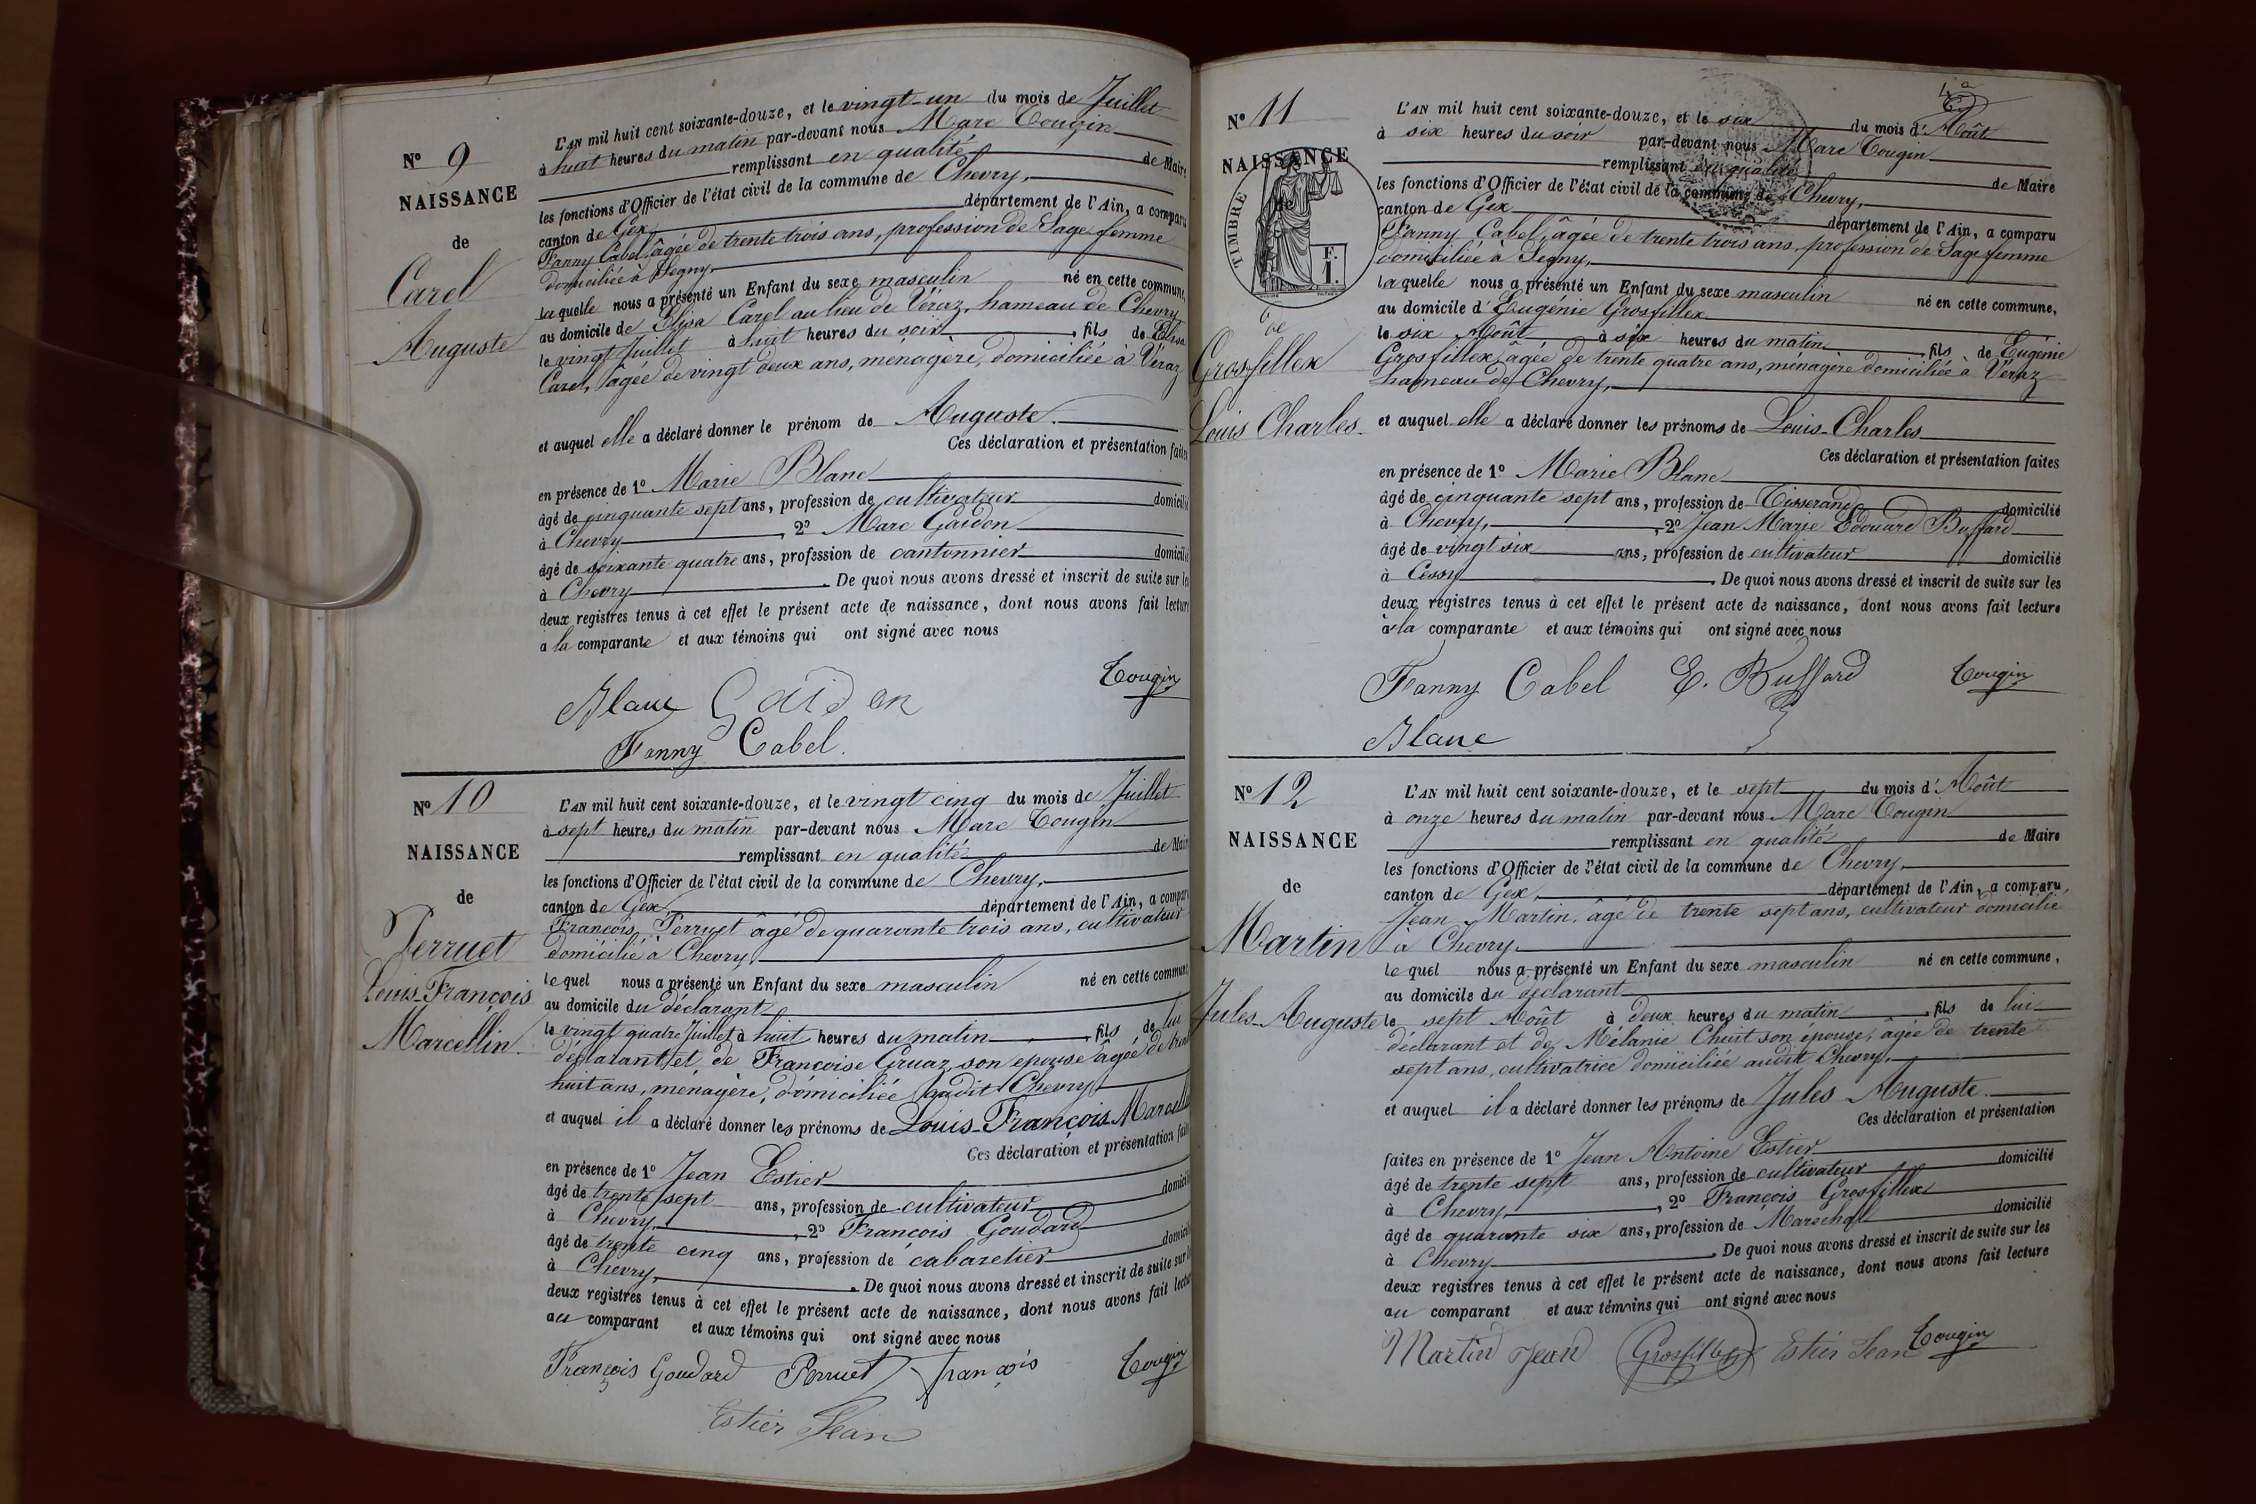 N° 9
NAISSANCE
de
Carel
Auguste
L'AN mil huit cent soixante-douze, et le vingt-un du mois de Juillet
à huit heures du matin par-devant nous Marc Tougin
remplissant en qualité de Maire
les fonctions d'Officier de l'état civil de la commune de Chevry,
canton de Gex département de l'Ain, a comparu
Fanny Cabel, âgée de trente trois ans, profession de Sage femme
domiciliée à Segny,
la quelle nous a présenté un Enfant du sexe masculin né en cette commune,
au domicile de Elisa Carel au lieu de Véraz, hameau de Chevry
le vingt Juillet à huit heures du soir, fils de Elisa
Carel, âgée de vingt deux ans, ménagère, domiciliée à Véraz
et auquel elle a déclaré donner le prénom de Auguste.
Ces déclaration et présentation faites
en présence de 1° Marie Blanc
âgé de cinquante sept ans, profession de cultivateur domicilié
à Chevry, 2° Marc Gaidon
âgé de soixante quatre ans, profession de cantonnier domicilié
à Chevry. De quoi nous avons dressé et inscrit de suite sur les
deux registres tenus à cet effet le présent acte de naissance, dont nous avons fait lecture
à la comparante et aux témoins qui ont signé avec nous
Tougin
Blanc Gaidon
Fanny Cabel.
N° 10
NAISSANCE
de
Perruet
Louis-François
Marcellin.
L'AN mil huit cent soixante-douze, et le vingt cinq du mois de Juillet
à sept heures du matin par-devant nous Marc Tougin
remplissant en qualité de Mair
les fonctions d'Officier de l'état civil de la commune de Chevry,
canton de Gex, département de l'Ain, a compar
François Perruet âgé de quarante trois ans, cultivateur
domicilié à Chevry,
le quel nous a présenté un Enfant du sexe masculin né en cette commun
au domicile du déclarant
le vingt quatre Juillet à huit heures du matin, fils de lui
déclarant et de Françoise Gruaz, son épouse âgée de
huit ans, ménagère, domiciliée audit Chevry
et auquel il a déclaré donner les prénoms de Louis-François-Marcelli
Ces déclaration et présentation fait
en présence de 1° Jean Estier
âgé de trente sept ans, profession de cultivateur domicili
à Chevry, 2° François Goudard
âgé de trente cinq ans, profession de cabaretier domicili
à Chevry, . De quoi nous avons dressé et inscrit de suite sur l
deux registres tenus à cet effet le présent acte de naissance, dont nous avons fait lectur
au comparant et aux témoins qui ont signé avec nous
François Goudard Perruet françois Tougin
Estier Jean
N° 11
NAISSANCE
de
TIMBRE
F.
1.
de
Grosfillex
Louis Charles.
L'AN mil huit cent soixante-douze, et le six du mois d'Août
à six heures du soir par-devant nous Marc Tougin
remplissant en qualité de Maire
les fonctions d'Officier de l'état civil de la commune de Chevry,
canton de Gex département de l'Ain, a comparu
Fanny Cabel, âgée de trente trois ans, profession de Sage femme
domiciliée à Segny,
la quelle nous a présenté un Enfant du sexe masculin né en cette commune,
au domicile d'Eugénie Grosfillex
le six Août à six heures du matin, fils de Eugénie
Grosfillex, âgée de trente quatre ans, ménagère domiciliée à Véraz
hameau de Chevry,
et auquel elle a déclaré donner les prénoms de Louis-Charles
Ces déclaration et présentation faites
en présence de 1° Marie Blanc
âgé de cinquante sept ans, profession de Tisserand domicilié
à Chevry, 2° Jean Marie Edouard Buffard
âgé de vingt six ans, profession de cultivateur domicilié
à Cessy. De quoi nous avons dressé et inscrit de suite sur les
deux registres tenus à cet effet le présent acte de naissance, dont nous avons fait lecture
à la comparante et aux témoins qui ont signé avec nous
Fanny Cabel E. Buffard Tougin
Blanc
N° 12
NAISSANCE
de
Martin
Jules-Auguste
L'AN mil huit cent soixante-douze, et le sept du mois d'Août
à onze heures du matin par-devant nous Marc Tougin
remplissant en qualité de Maire
les fonctions d'Officier de l'état civil de la commune de Chevry,
canton de Gex, département de l'Ain, a comparu
Jean Martin, âgé de trente sept ans, cultivateur domicilié
à Chevry
le quel nous a présenté un Enfant du sexe masculin né en cette commune,
au domicile du déclarant
le sept Août à deux heures du matin, fils de lui
déclarant et de Mélanie Chuit son épouse, âgée de trente
sept ans, cultivatrice domiciliée audit Chevry,
et auquel il a déclaré donner les prénoms de Jules Auguste.
Ces déclaration et présentation
faites en présence de 1° Jean Antoine Estier
âgé de trente sept ans, profession de cultivateur domicilié
à Chevry, 2° François Grosfillex
âgé de quarante six ans, profession de Marechal domicilié
à Chevry. De quoi nous avons dressé et inscrit de suite sur les
deux registres tenus à cet effet le présent acte de naissance, dont nous avons fait lecture
au comparant et aux témoins qui ont signé avec nous
Martin Jean Grosfillex Estier Jean Tougin